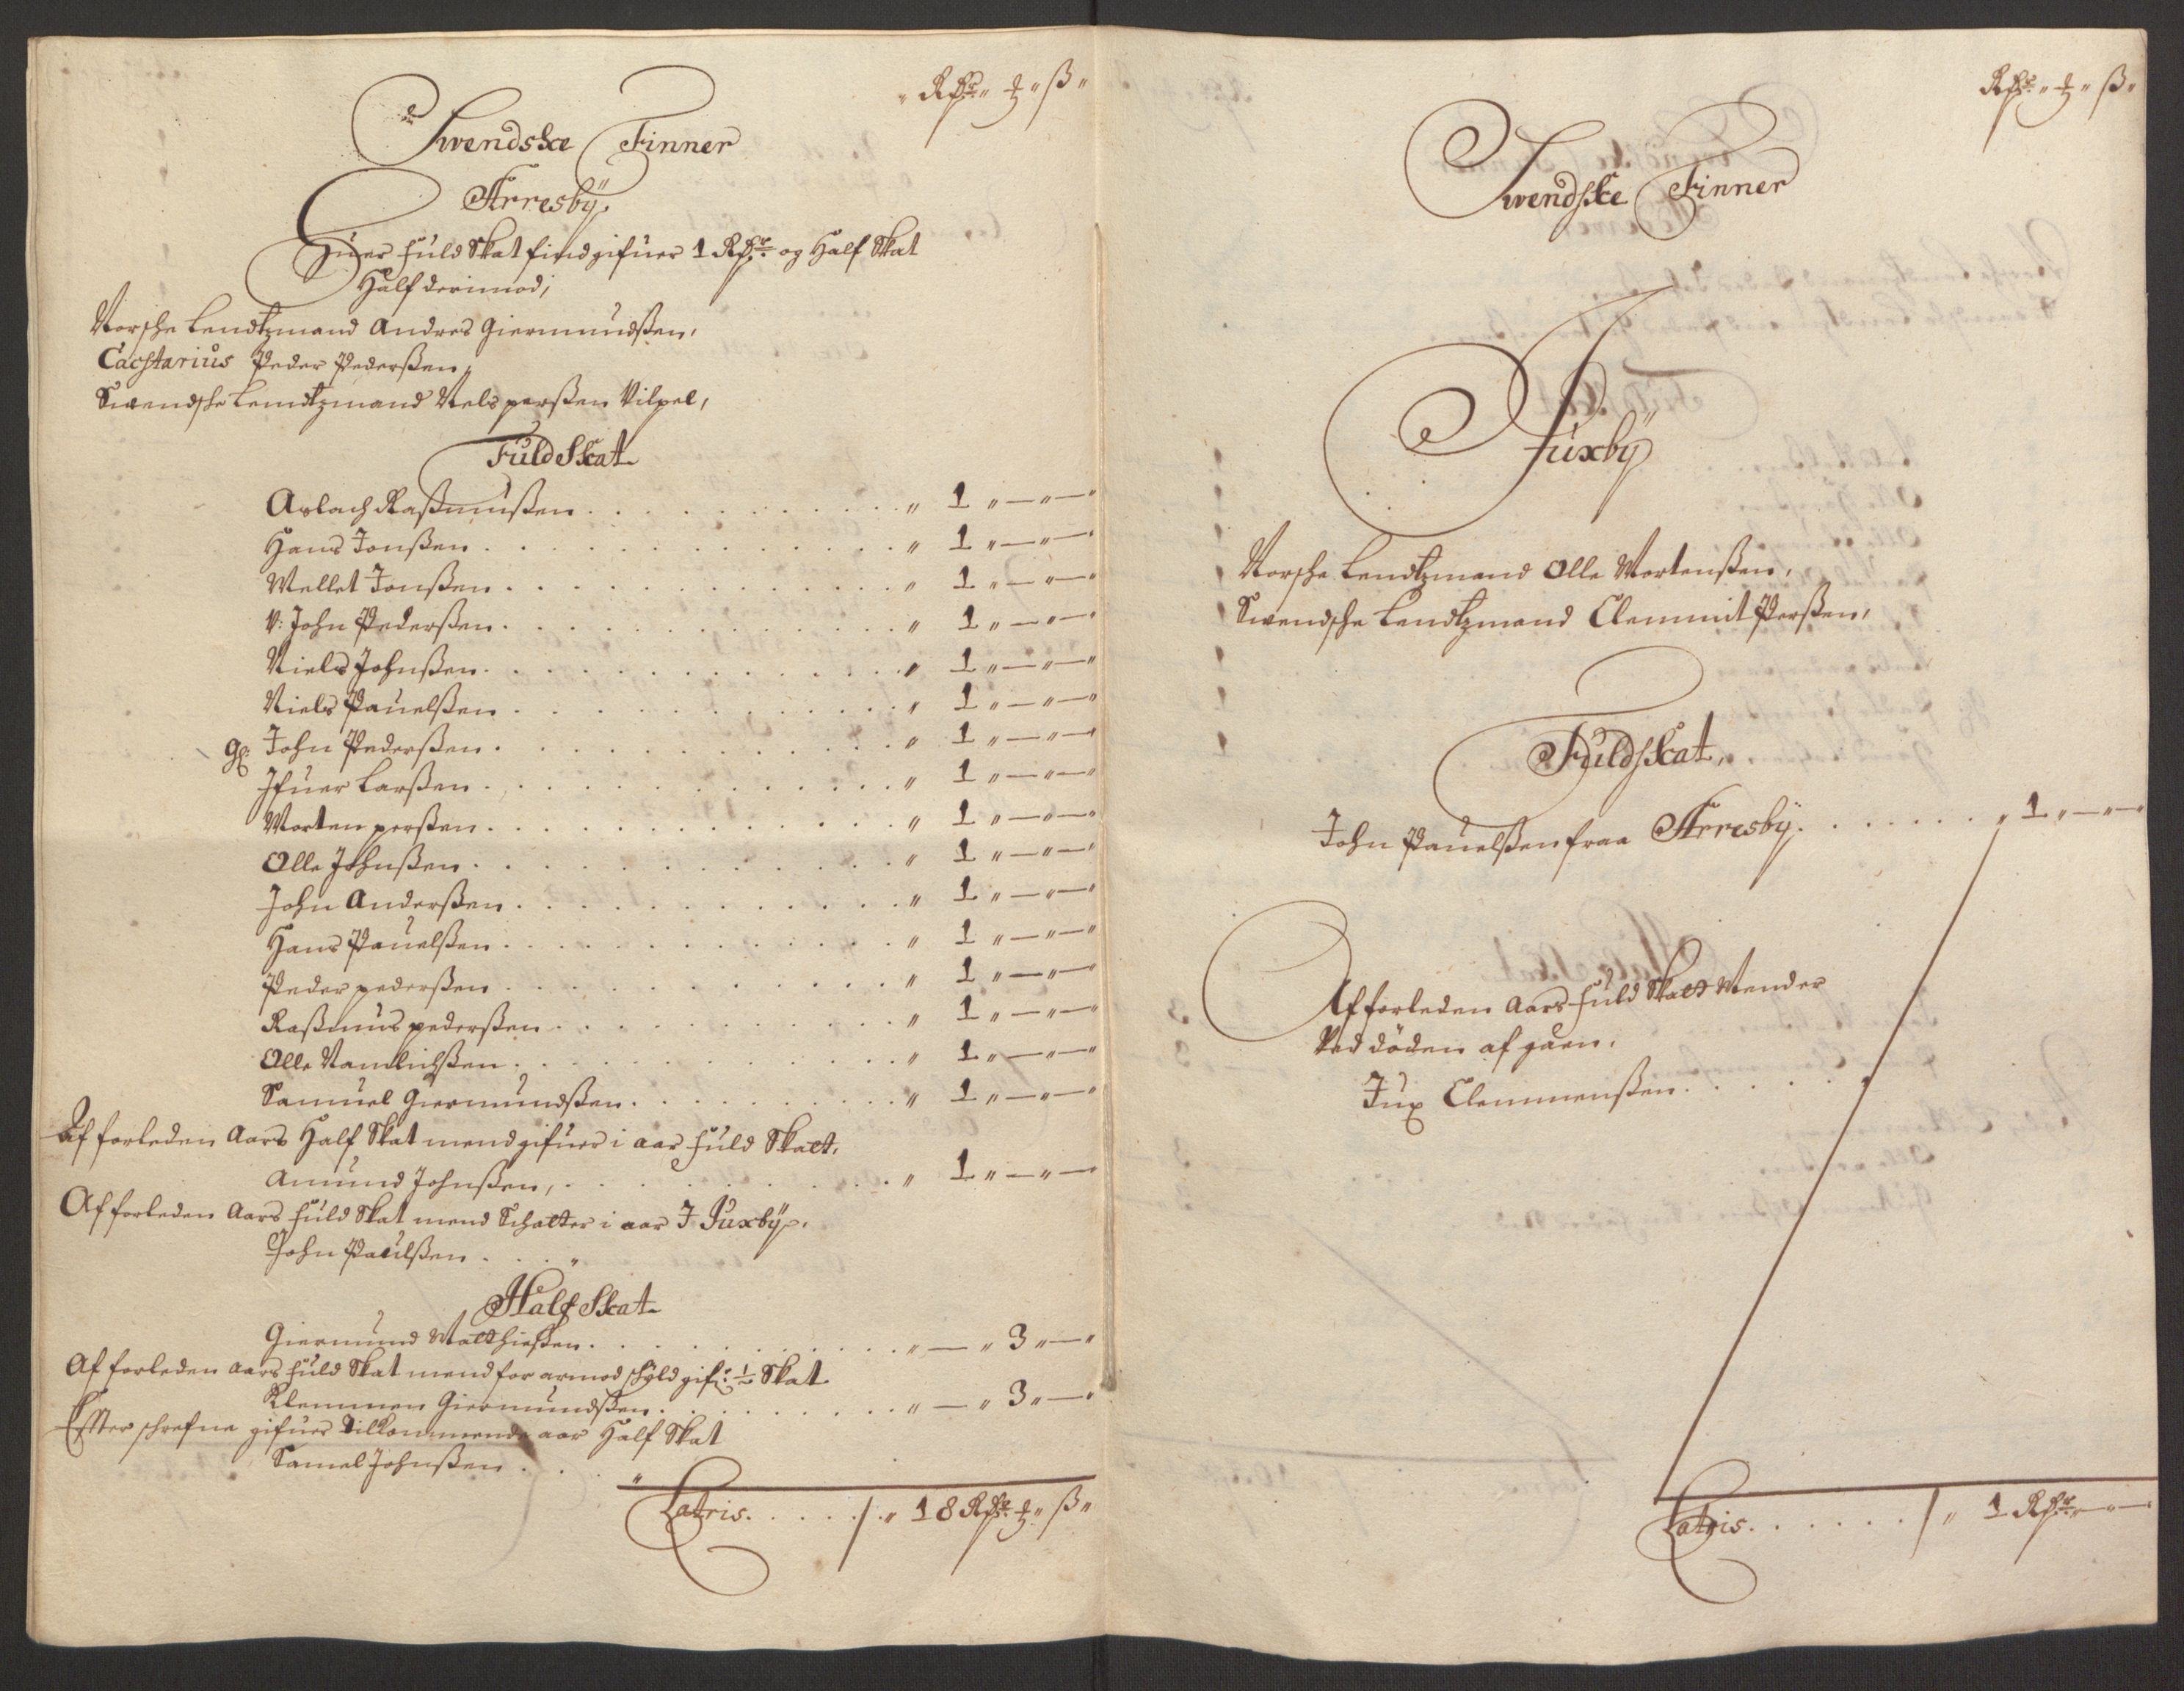 Rdr " ₰ " ß "
Swendske Finner
Arresbÿ
Huer fuld Skat find gifuer 1 Rdr og Half Skat
Half derimod;
Norsche Lendtzmand Andres Giermundßen,
Peder Pederßen,
Swendsche Lendtzmand Nels perßen Vilpel,
Fuld Skat
Aslach Raßmußen . . . " 1 " — " — "
Hans Jonßen . . . " 1 " — " — "
Mellet Jonßen . . . " 1 " — " — "
V: John Pederßen . . . " 1 " — " — "
Niels Johnßen . . . " 1 " — " — "
Niels Pauelßen . . . " 1 " — " — "
gl: John Pederßen . . . " 1 " — " — "
Ifuer Larßen . . . " 1 " — " — "
Morten perßen . . . " 1 " — " — "
Olle Johnßen . . . " 1 " — " — "
John Anderßen . . . " 1 " — " — "
Hans Pauelßen . . . " 1 " — " — "
Peder pederßen . . . " 1 " — " — "
Raßmus pederßen . . . " 1 " — " — "
Olle . . . " 1 " — " — "
Samuel Giermundßen . . . " 1 " — " — "
Af forleden Aars Half Skat mend gifuer i aar fuld Skatt.
Amund Johnßen, . . . " 1 " — " — "
Af forleden Aars fuld Skat mend Schatter i aar I Juxbÿ.
John Paulßen . . . "
Half Skat
Giermund Matthießen . . . " — " 3 " — "
Af forleden aars fuld Skat mend for armod schyld gif: ½ Skat
Klemmen Giermundßen . . . " — " 3 " — "
Effter schrefne gifuer tilkommende aar Half Skat
Samel Johnßen . . . "
Latris. . . . . . / . " 18 Rdr ₰ " ß "
Rdr " ₰ " ß "
Swendske Finner
Juxbÿ
Norsche Lendtzmand Olle Mortenßen,
Swendsche Lendtzmand Clemmit Perßen,
Fuldskat,
John Pauelßen fraa Arresbÿ . . . " 1 " — " — "
Af forleden Aars fuld Skatt Mender
Ved döden af gaaen.
Jux Clemmenßen . . .
Latris. . . . . . / " 1 Rdr " — " —